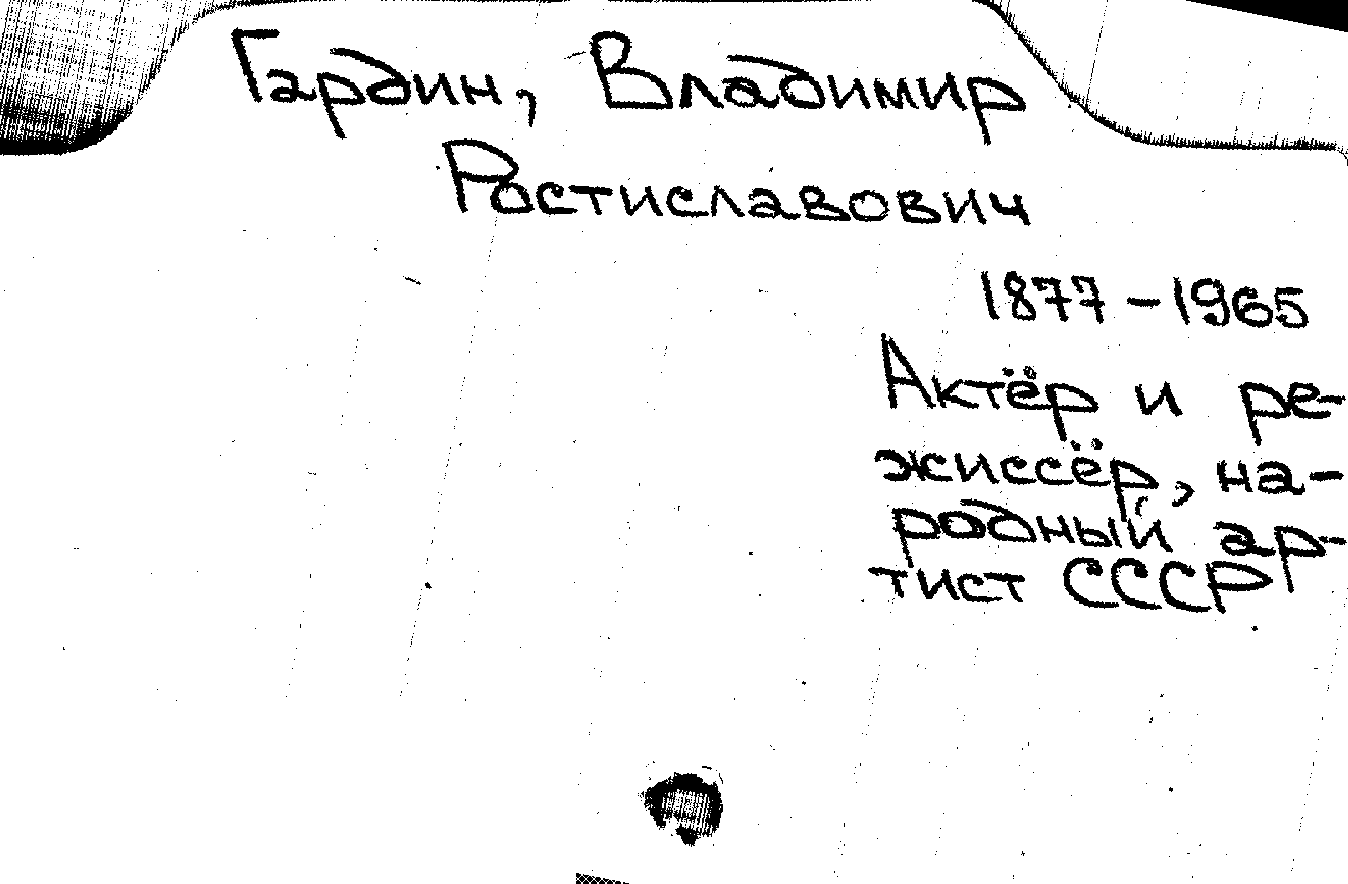 Гардин, Владимир
Ростиславович
1877-1965
Актёр и ре-
жиссёр, на-
родный ар-
тист СССР